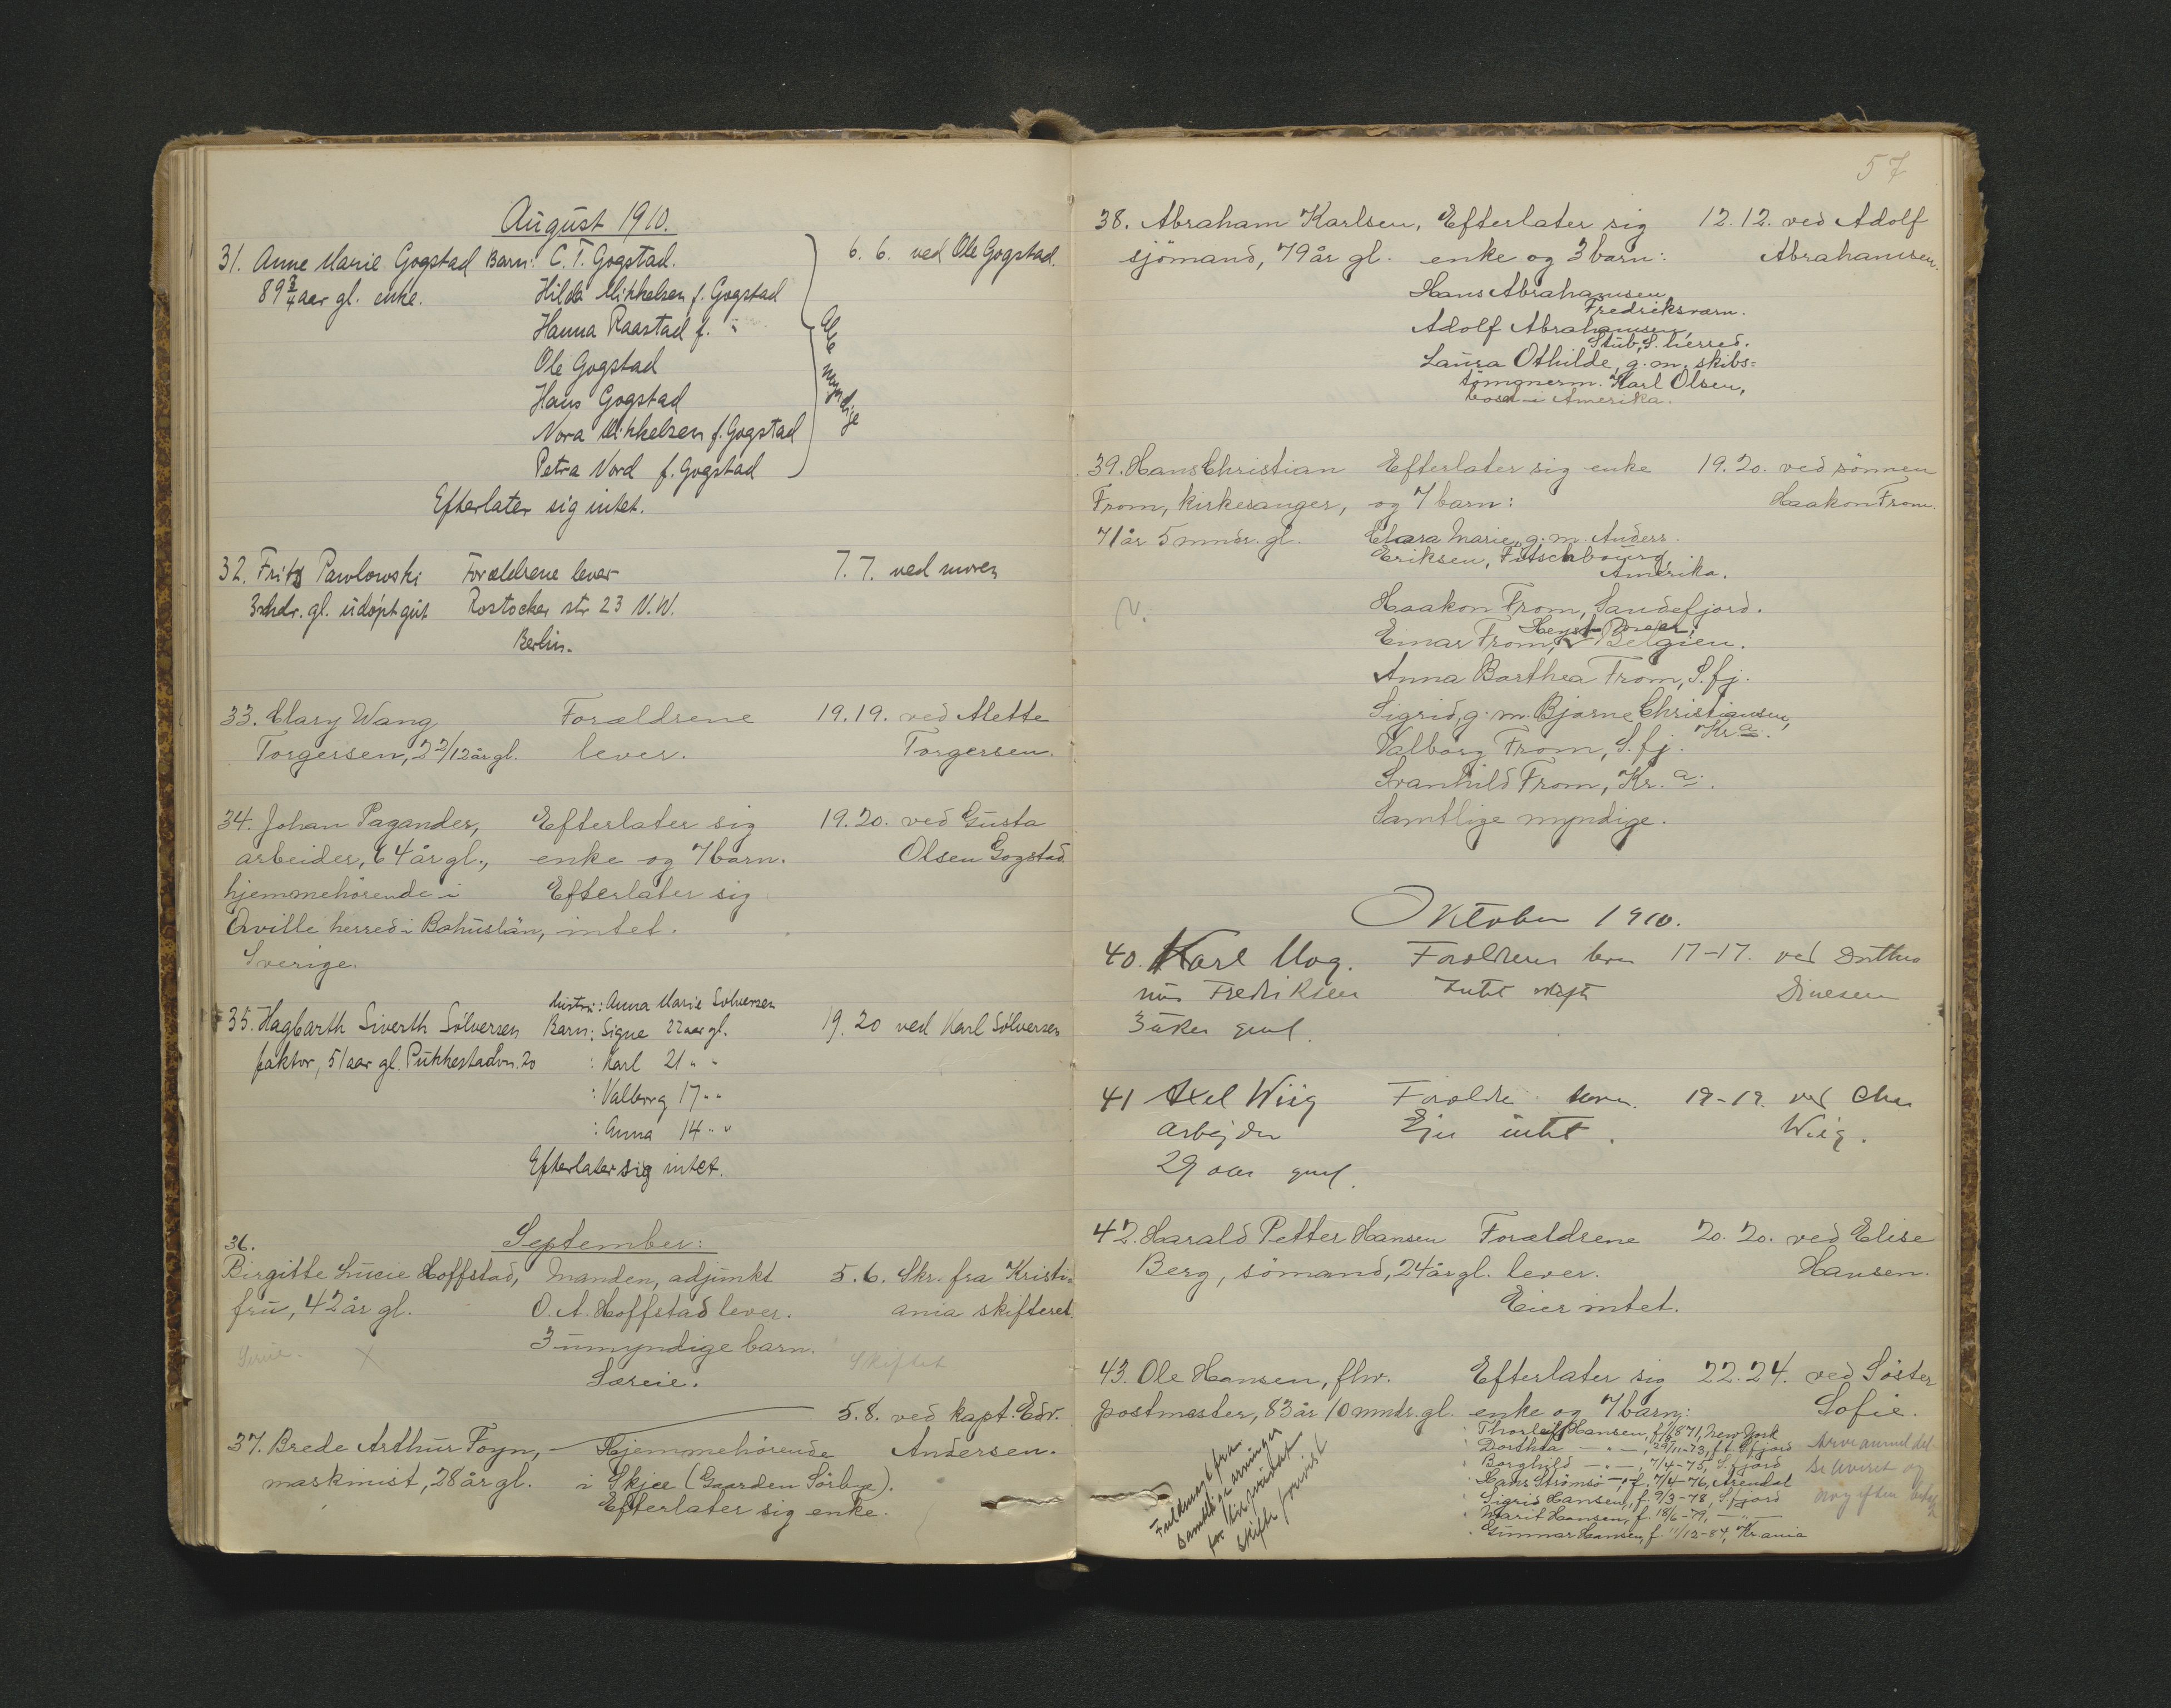 August 1910.
31. Anne Marie Gogstad Barn: C. T. Gogstad. 6. 6. ved Ole Gogstad.
89 3/4 aar gl. enke. Hilda Mikkelsen f. Gogstad
Hanna Raastad f. "
Ole Gogstad
Hans Gogstad
Nora Mikkelsen f. Gogstad
Petra Nord f. Gogstad
Alle myndige
Efterlater sig intet.
32. Fritz Pawlowski Forældrene lever 7. 7. ved moren
3 mdr. gl. udöpt gut Rostocker str 23 N.W.
Berlin.
33. Clary Wang Forældrene 19. 19. ved Alette
Torgersen, 2 2/12 år gl. lever. Torgersen.
34. Johan Pagander, Efterlater sig 19. 20. ved Gusta
arbeider, 64 år gl., enke og 7 barn. Olsen Gogstad
hjemmehörende i Efterlater sig
Qville herred i Bahuslän, intet.
Sverige.
Hustru: Anna Marie Sölversen
35. Hagbarth Siverth Sölversen Barn: Signe 22 aar gl. 19. 20 ved Karl Sölversen
faktor, 51 aar gl. Pukkestadvn. 20 : Karl 21 " "
: Valborg 17 " "
: Anna 14 " "
Efterlater sig intet.
September:
36.
Birgitte Lucie Hoffstad, Manden, adjunkt 5. 6. Skr. fra Kristi=
fru, 42 år gl. O. A. Hoffstad lever. ania skifteret.
3 umyndige barn.
X Skiftet
Særeie.
5. 8. ved kapt. Edv.
37. Brede Arthur Foyn, Hjemmehörende Andersen.
maskinist, 28 år gl. i Skjee (Gaarden Sörbye).
Efterlater sig enke.
57
38. Abraham Karlsen, Efterlater sig 12. 12. ved Adolf
sjömand, 79 år gl. enke og 3 barn: Abrahamsen.
Hans Abrahamsen,
Fredriksværn.
Adolf Abrahamsen,
Stub, S. herred.
Laura Othilde, g. m. skibs=
tömmerm. Karl Olsen,
bosat i Amerika.
39. Hans Christian Efterlater sig enke 19. 20. ved sönnen
From, kirkesanger, og 7 barn: Haakon From.
71 år 5 mndr. gl. Clara Marie, g. m. Anders
Eriksen, Fitschbourg,
Amerika.
Haakon From, Sandefjord.
Heyst
Einar From, Belgien.
Anna Barthea From, S.fj.
Sigrid, g. m. Bjarne Christiansen,
Kr.a.
Valborg From, S.fj.
Svanhild From, Kr.a.
Samtlige myndige.
Oktober 1910.
40. Karl Mag. Foreldrene lever 17-17. ved
nus Fredriksen Intet skifte Dinesen
3 uker gml.
41 Axel Wiig Foreldre lever. 19-19. ved
Arbejder Ejer intet. Wiig.
29 aar gml.
42. Harald Petter Hansen Forældrene 20. 20. ved Elise
Berg, sömand, 24 år gl. lever. Hansen.
Eier intet.
43. Ole Hansen, fhv. Efterlater sig 22. 24. ved Söster
postmester, 83 år 10 mndr. gl. enke og 7 barn: Sofie.
Thorleif Hansen, f. 1871, New York
Dorthea — " —, 29/11-73, f. t. S.fjord
Borghild — " —, 7/4-75, S.fjord
Hans Strömsö — " —, f. 7/4-76, Arendal
Sigrid Hansen, f. 9/3-78, S.fjord
Marit Hansen, f. 18/6-79, — " —
Gunnar Hansen, f. 11/12-84, Kr.ania
Fuldmagt fra
samtlige arvinger
for
skifte forevist